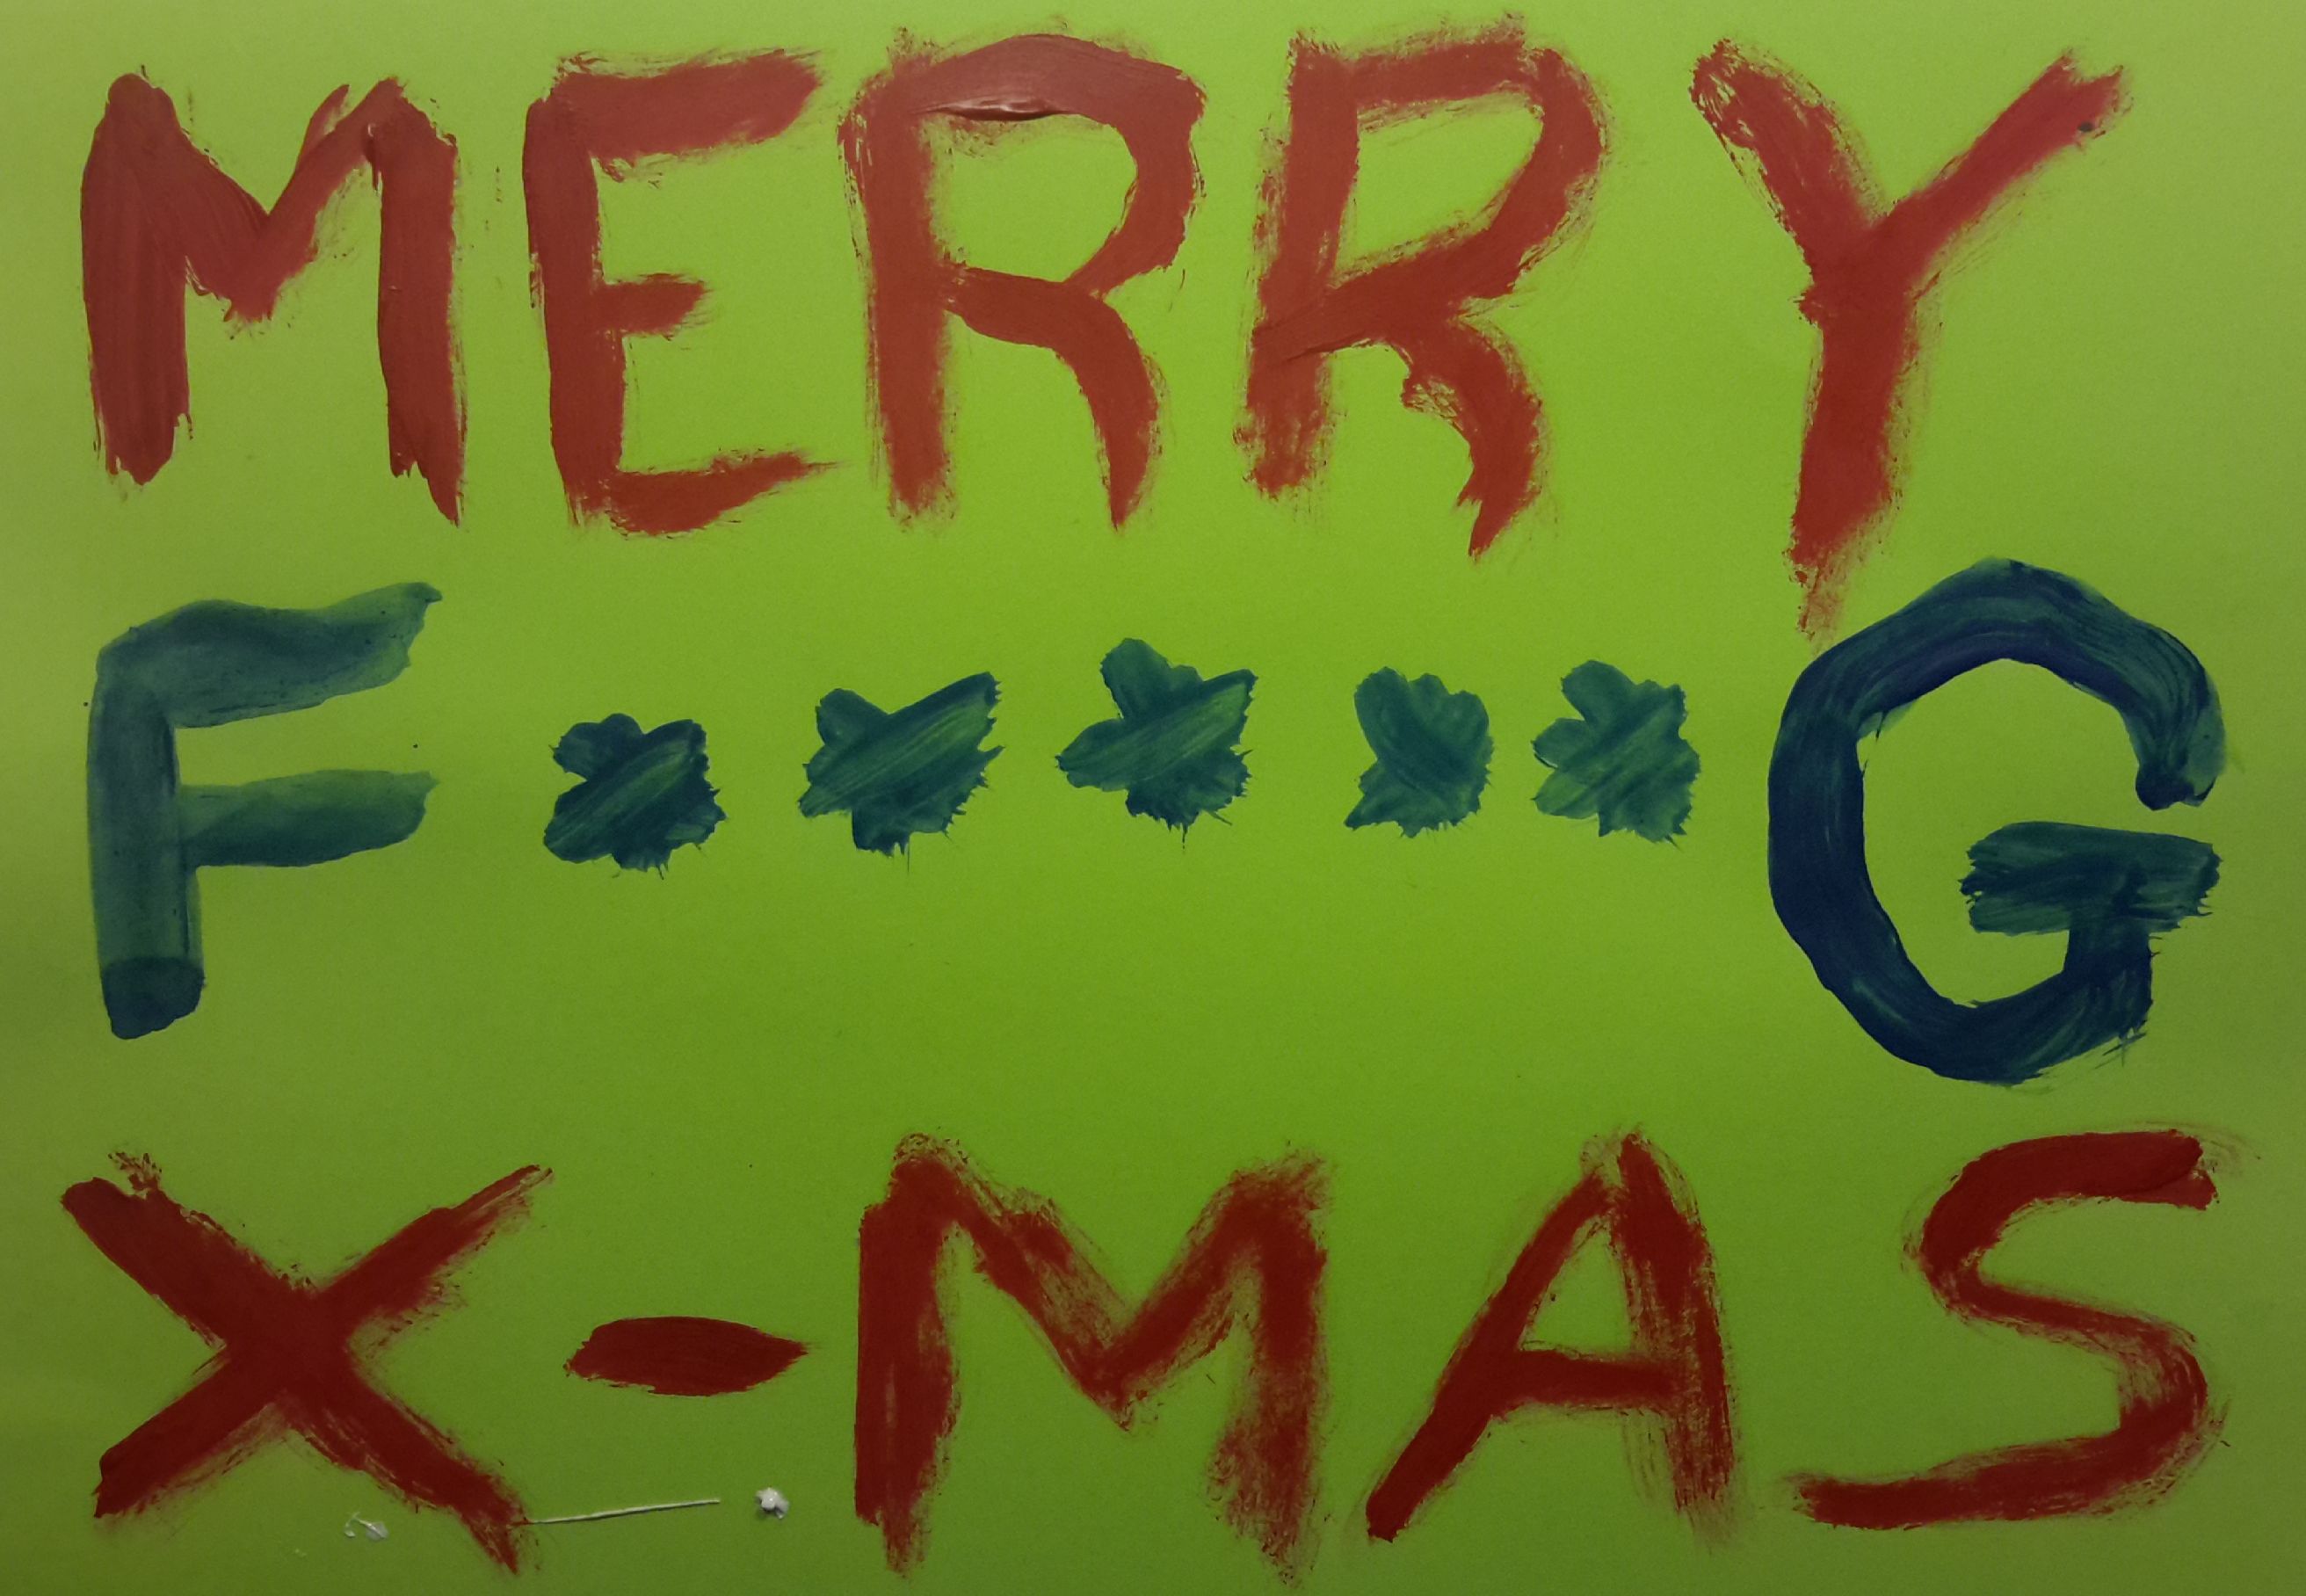 MERRY
F*****G
X-MAS